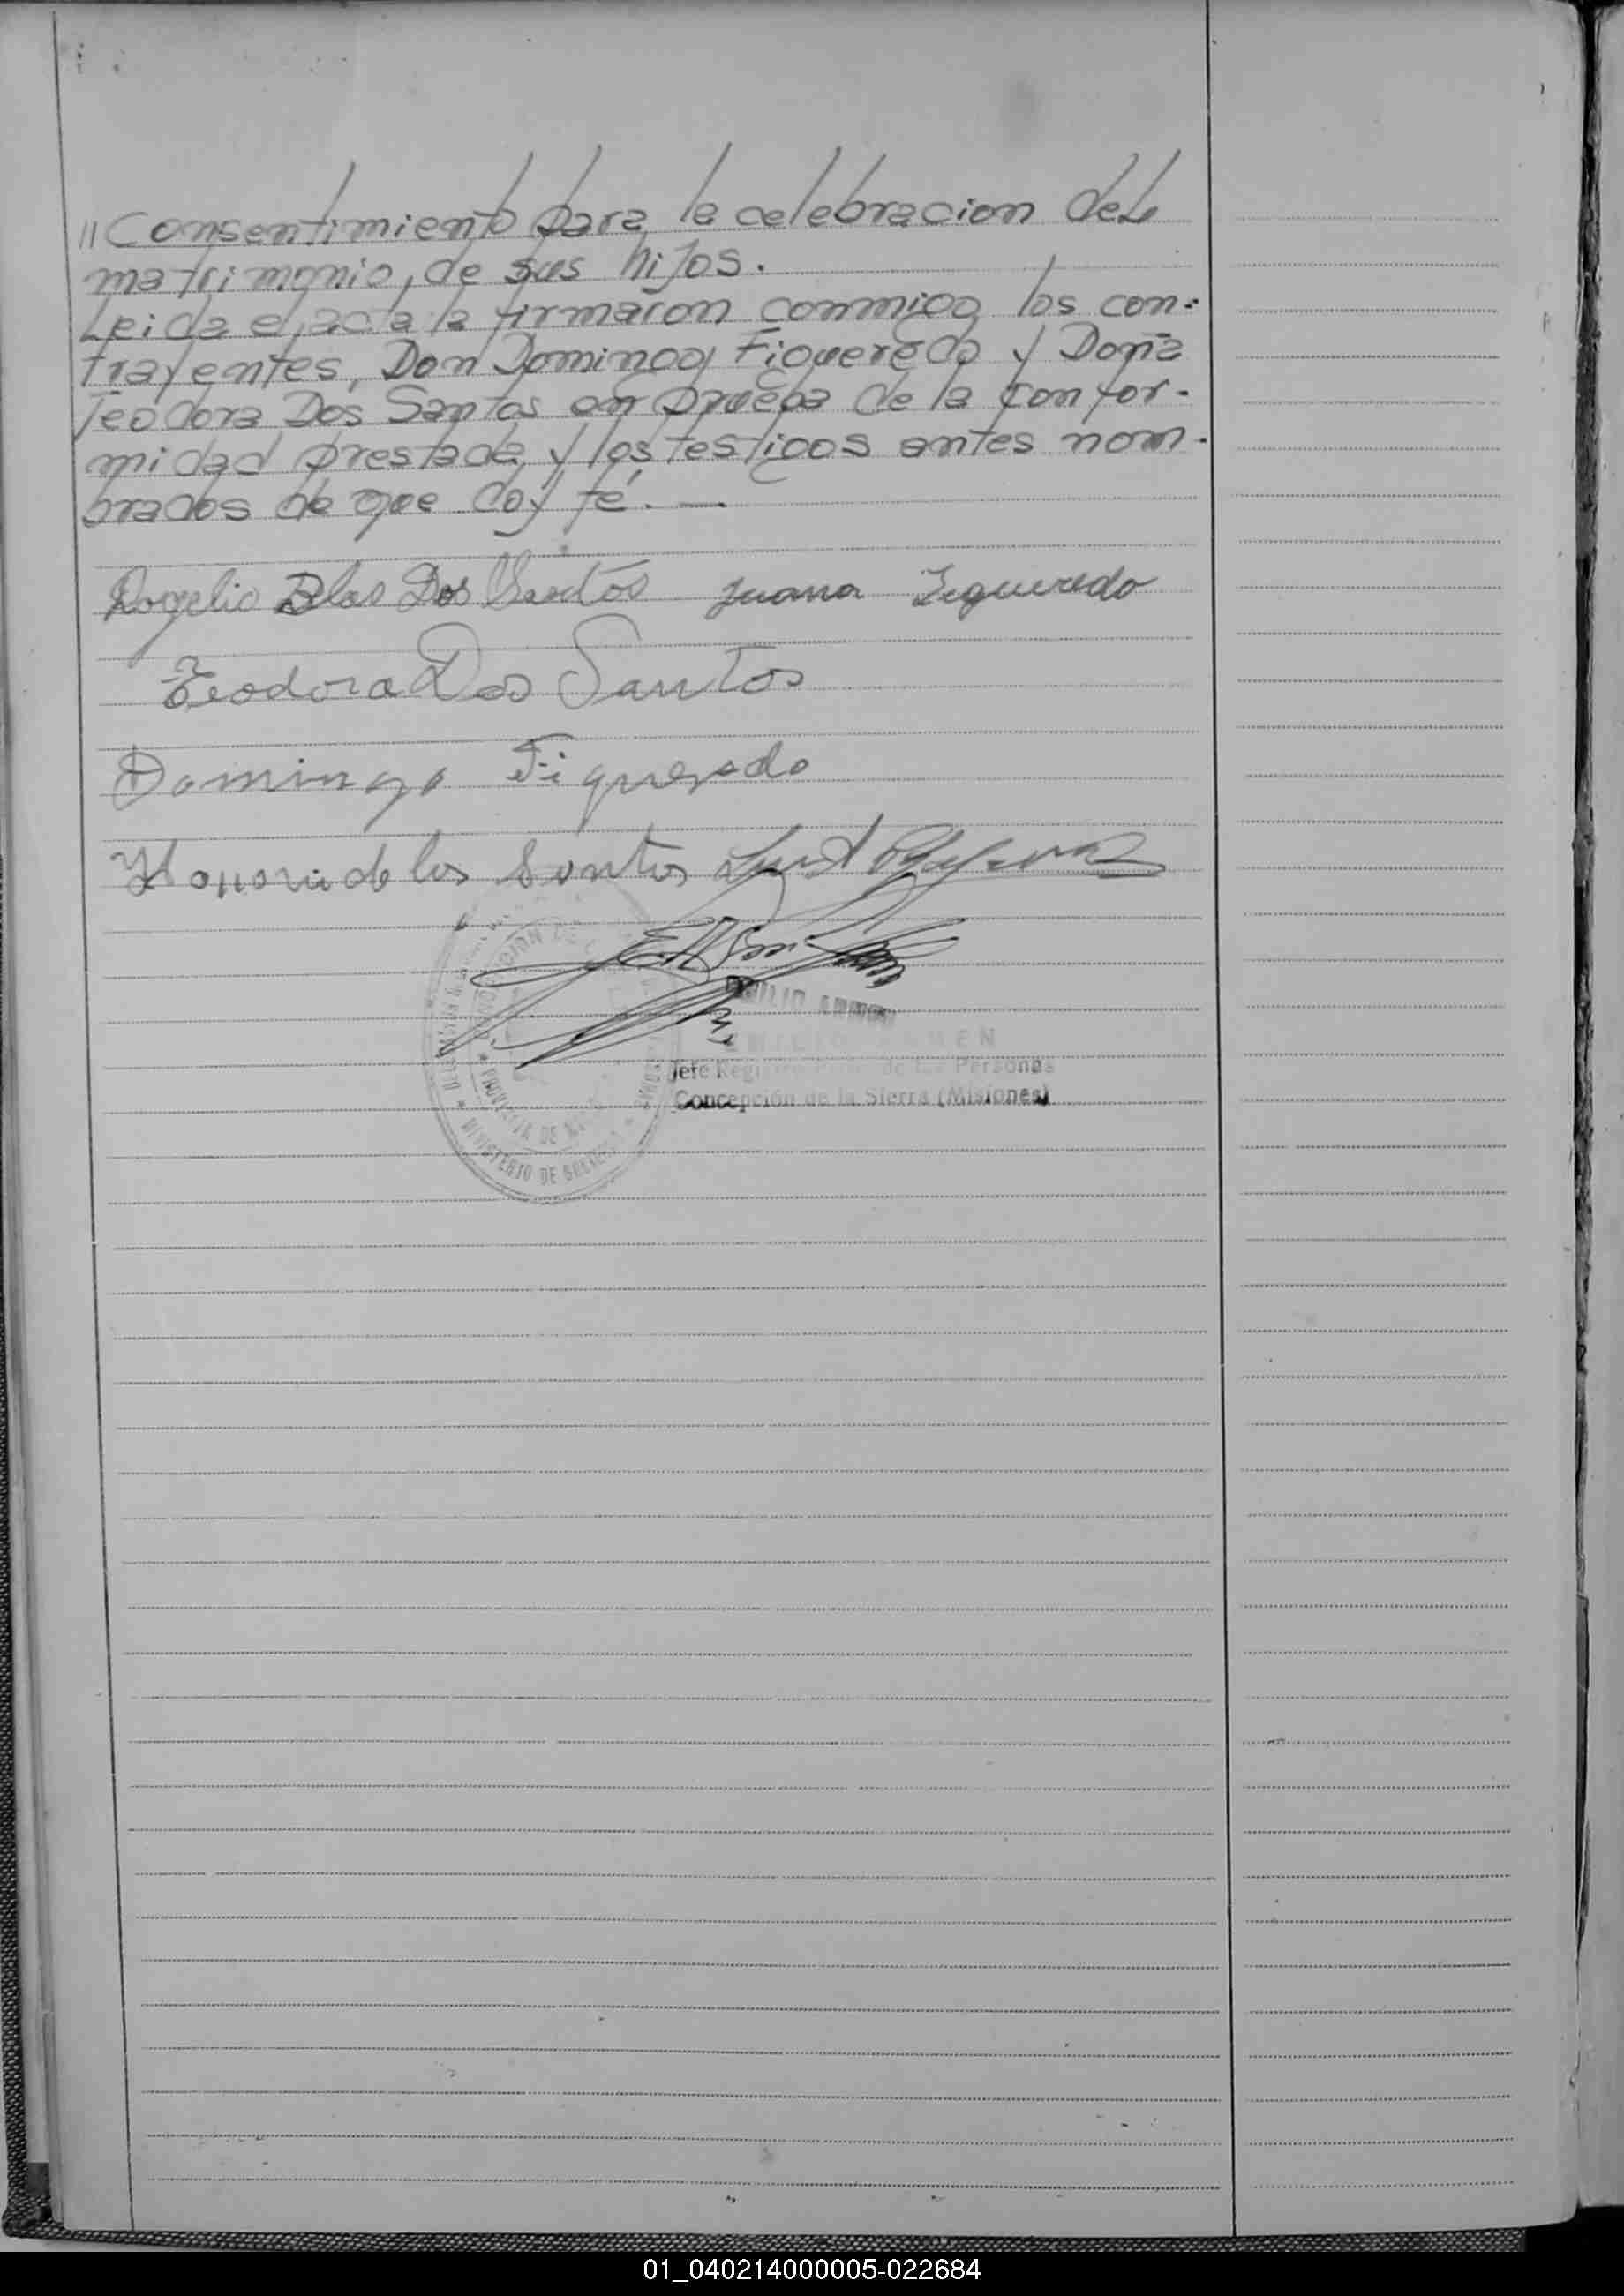 "Consentimiento para la celebracion del
matrimonio, de sus hijos.
Leida el acta la firmaron conmigo los con-
trayentes, Don Domingo Figueredo y Doña
Teodora Dos Santos en prueba de la confor-
midad prestada y los testigos antes nom-
brados de que doy fé. —
Rogelio Blas Dos Santos Juana Figueredo
Teodora Dos Santos
Domingo Figueredo
de los Santos
Jefe Registro de las Personas
Concepción de la Sierra (Misiones)
PROVINCIA DE
MINISTERIO DE
01_040214000005-022684